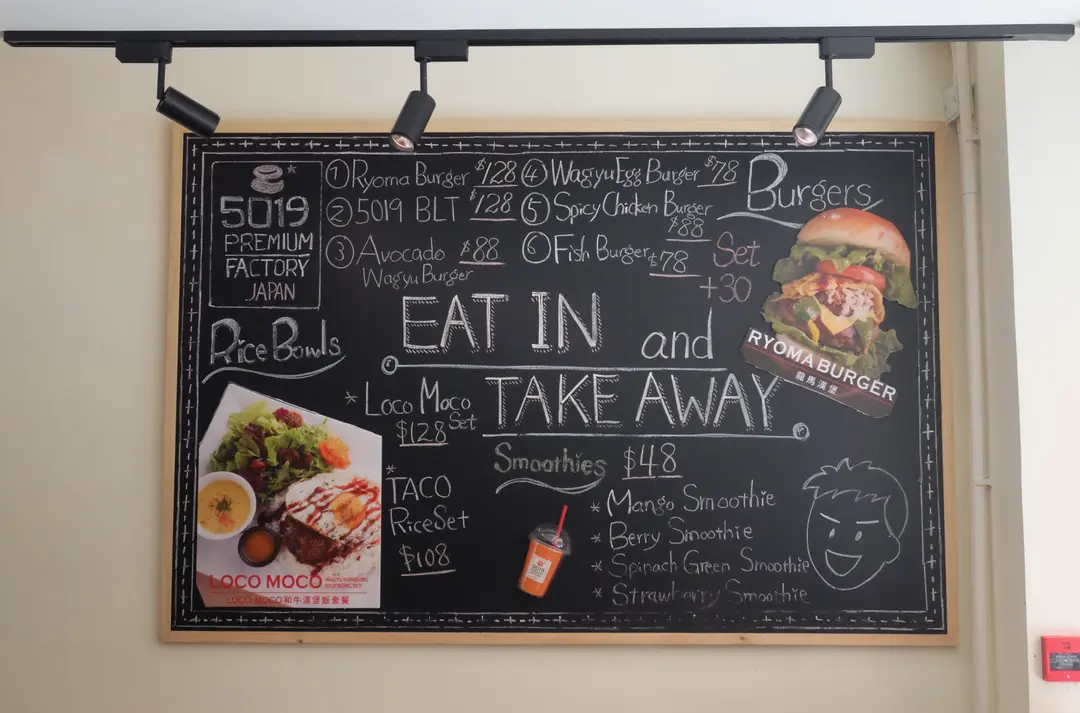 5019
PREMIUM
FACTORY
JAPAN
① Ryoma Burger $128
② 5019 BLT $128
③ Avocado $88
Wagyu Burger
④ Wagyu Egg Burger $78
⑤ Spicy Chicken Burger
$88
⑥ Fish Burger $78
Burgers
Set
+30
RYOMA BURGER
龍馬漢堡
EAT IN and
TAKE AWAY
Rice Bowls
* Loco Moco
Set
$128
* TACO
Rice Set
$108
LOCO MOCO
LOCO MOCO和牛漢堡飯套餐
Smoothies $48
* Mango Smoothie
* Berry Smoothie
* Spinach Green Smoothie
* Strawberry Smoothie